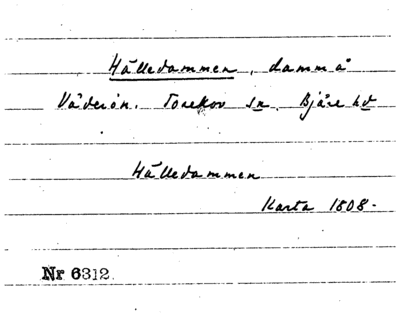 Hälledammen, damm å
Väderön. Torekov sn. Bjäre hd
Hälledammen
Karta 1808.
Nr 6312.